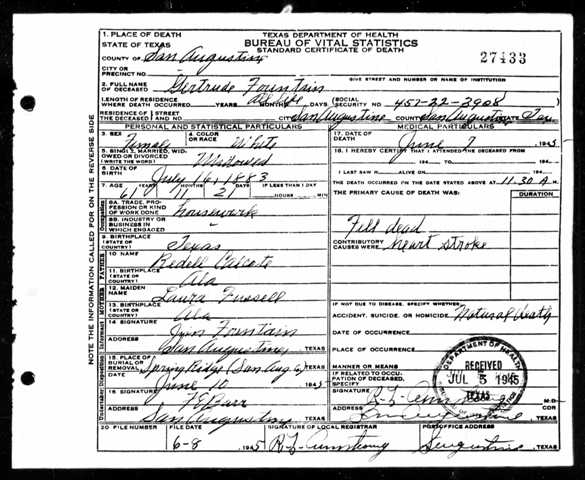 TEXAS DEPARTMENT OF HEALTH
BUREAU OF VITAL STATISTICS
STANDARD CERTIFICATE OF DEATH
27433
1. PLACE OF DEATH
STATE OF TEXAS
COUNTY OF San Augustine
CITY OR PRECINCT NO.
GIVE STREET AND NUMBER OR NAME OF INSTITUTION
2. FULL NAME OF DECEASED Gertrude Fountain
LENGTH OF RESIDENCE WHERE DEATH OCCURRED YEARS All Life DAYS (SOCIAL SECURITY NO. 457-22-3908
RESIDENCE OF THE DECEASED STREET CITY San Augustine COUNTY San Augustine STATE Tex
PERSONAL AND STATISTICAL PARTICULARS
MEDICAL PARTICULARS
3. SEX Female
4. COLOR OR RACE White
5. SINGLE, MARRIED, WIDOWED OR DIVORCED (WRITE THE WORD) Widowed
6. DATE OF BIRTH July 16, 1883
7. AGE 61 YEARS 11 21 IF LESS THAN 1 DAY
HOURS MIN
8A. TRADE, PROFESSION OR KIND OF WORK DONE housework
8B. INDUSTRY OR BUSINESS IN WHICH ENGAGED
9. BIRTHPLACE (STATE OR COUNTRY) Texas
10. NAME Redell
11. BIRTHPLACE (STATE OR COUNTRY) Ala
12. MAIDEN NAME Laura Fussell
13. BIRTHPLACE (STATE OR COUNTRY) Ala
14. SIGNATURE Fountain
ADDRESS San Augustine TEXAS
15. PLACE OF BURIAL OR REMOVAL Spring Ridge (San Aug) TEXAS
June 10 1945
16. SIGNATURE
ADDRESS San Augustine TEXAS
17. DATE OF DEATH June 7 1945
18. I HEREBY CERTIFY THAT I ATTENDED THE DECEASED FROM
194 TO 194
I LAST SAW H ALIVE ON 194
THE DEATH OCCURRED ON THE DATE STATED ABOVE AT 11.30 A M.
THE PRIMARY CAUSE OF DEATH WAS:
DURATION
Fell dead
CONTRIBUTORY CAUSES WERE: heart stroke
IF NOT DUE TO DISEASE, SPECIFY WHETHER:
ACCIDENT, SUICIDE, OR HOMICIDE Natural death
DATE OF OCCURRENCE
PLACE OF OCCURRENCE
MANNER OR MEANS
IF RELATED TO OCCUPATION OF DECEASED, SPECIFY
SIGNATURE R. L. Armstrong M.D. OR
ADDRESS San Augustine TEXAS
DEPARTMENT OF HEALTH
RECEIVED
JUL 5 1945
TEXAS
20 FILE NUMBER
FILE DATE
6-8 1945
SIGNATURE OF LOCAL REGISTRAR
R L Armstrong
POSTOFFICE ADDRESS
TEXAS
NOTE THE INFORMATION CALLED FOR ON THE REVERSE SIDE